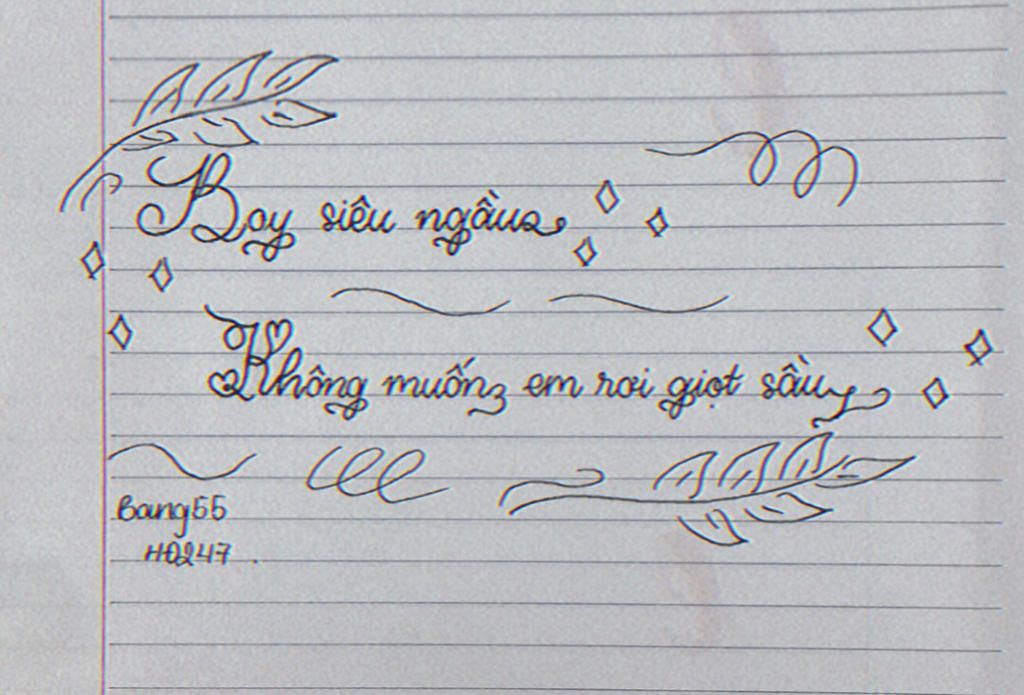 Boy siêu ngầu
Không muốn em rơi giọt sầu
Bang55
HĐ247